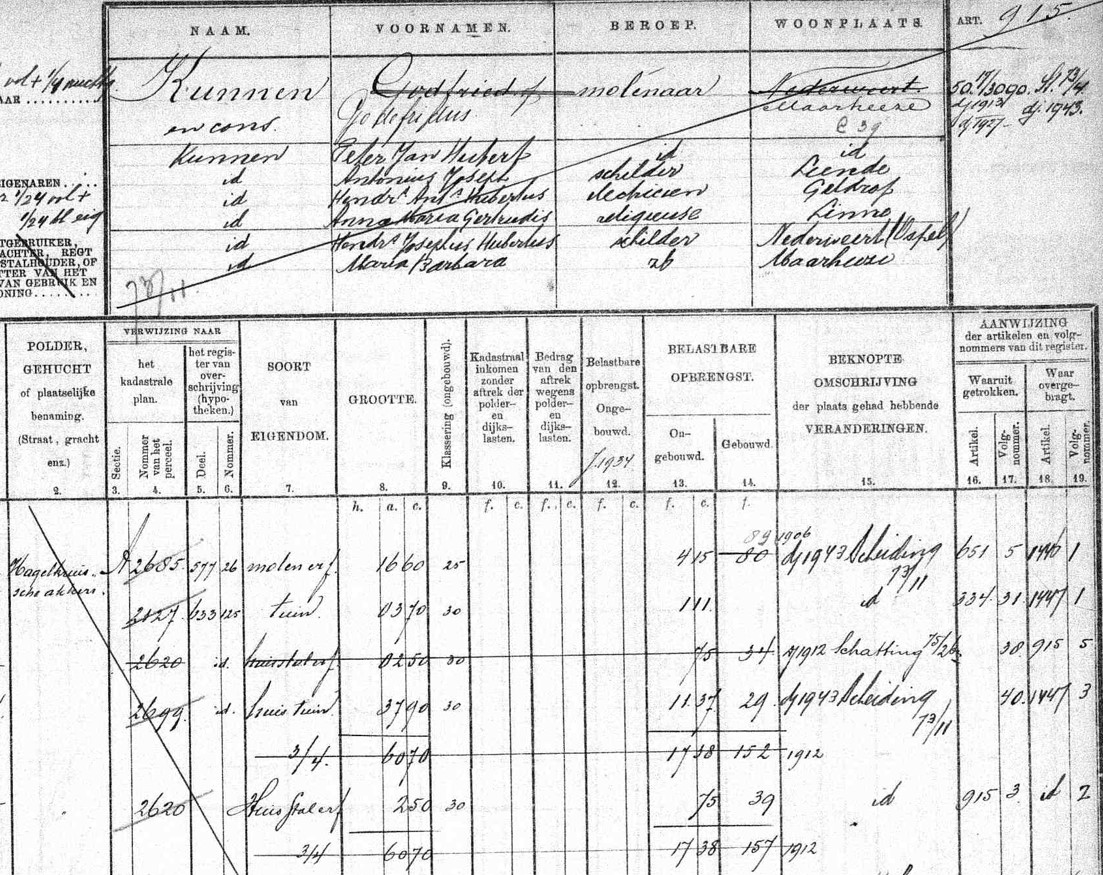 NAAM. VOORNAMEN. BEROEP. WOONPLAATS. ART. 915.
Kunnen Godfried molenaar Nederweert
Godefridus Maarheeze
en cons.
Kunnen Peter Jan Hubert id id
id Antonius Joseph schilder Leende
id Hendr. Ant. Hubertus Geldrop
id Anna Maria Gertrudis religieuse Linne
id Hendr. Josephus Hubertus schilder Nederweert (Ospel)
id Maria Barbara zb Maarheeze
AAR
EIGENAREN
1/24 vol +
1/24 bl eig
TGEBRUIKER,
ACHTER, REGT
STALHOUDER, OF
TTER VAN HET
VAN GEBRUIK EN
ONING
dj 1913
dj 1927
dj. 1943.
73/11
POLDER, GEHUCHT of plaatselijke benaming. (Straat, gracht enz.) 2.
VERWIJZING NAAR
het kadastrale plan. Sectie. 3. Nommer van het perceel. 4.
het register van overschrijving (hypotheken.) Deel. 5. Nommer. 6.
SOORT van EIGENDOM. 7.
GROOTTE. 8.
Klassering (ongebouwd). 9.
Kadastraal inkomen zonder aftrek der polder- en dijkslasten. 10.
Bedrag van den aftrek wegens polder- en dijkslasten. 11.
Belastbare opbrengst. Ongebouwd. 12.
dj 1934
BELASTBARE OPBRENGST.
Ongebouwd. 13. Gebouwd. 14.
BEKNOPTE OMSCHRIJVING der plaats gehad hebbende VERANDERINGEN. 15.
AANWIJZING der artikelen en volgnommers van dit register.
Waaruit getrokken. Artikel. 16. Volgnommer. 17.
Waar overgebragt. Artikel. 18. Volgnommer. 19.
h. a. c. f. c. f. c. f. c. f. c. f.
89 1906
Hagelkruis- A 2685 577 26 molen erf 16 60 25 4 15 80 dj 1943 Scheiding 651 5 1446 1
sche akkers. 73/11
2127 633 125 tuin 03 70 30 1 11 id 334 31 1447 1
2620 id. huis stal erf 02 50 30 75 34 dj 1912 Schatting 75/26 38 915 5
2699 id. huis tuin 37 90 30 11 37 29 dj 1943 Scheiding 40 1447 3
73/11
3/4. 60 70 17 38 152 1912
2620 Huis stal erf 2 50 30 75 39 id 915 3 id 2
3/4 60 70 17 38 157 1912